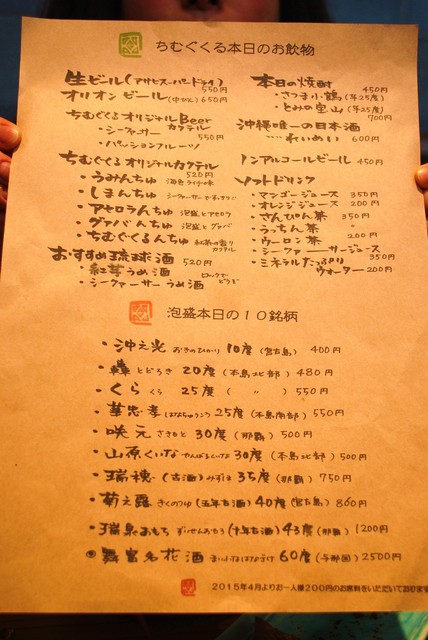 ちむぐくる本日のお飲物
生ビール(アサヒスーパードライ)
550円
オリオンビール(中びん)650円
ちむぐくるオリジナルBeer
カクテル
・シークァーサー 550円
・パッションフルーツ
ちむぐくるオリジナルカクテル
520円
・うみんちゅ
・しまんちゅ
・アセロラんちゅ 泡盛とアセロラ
・グァバんちゅ 泡盛とグァバ
・ちむぐくるんちゅ 紅茶の香り
カクテル
おすすめ琉球酒 520円
・紅芋うめ酒 ロックで
・シークァーサーうめ酒 どうぞ
本日の焼酎
450円
・さつま小鶴(芋25度)
・とみの宝山(芋25度)
700円
沖縄唯一の日本酒
…れいめい 600円
ノンアルコールビール 450円
ソフトドリンク
・マンゴージュース 350円
・オレンジジュース 200円
・さんぴん茶 350円
・うっちん茶
・ウーロン茶 200円
・シークァーサージュース
350円
・ミネラルたっぷり
ウォーター 200円
泡盛本日の10銘柄
・沖之光 おきのひかり 10度(宮古島) 400円
・轟 とどろき 20度(本島北部) 480円
・くら くら 25度( 〃 ) 550円
・華忠孝 はなちゅうこう 25度(本島南部) 550円
・咲元 さきもと 30度(那覇) 500円
・山原くいな やんばるくいな 30度(本島北部) 500円
・瑞穂(古酒)みずほ 35度(那覇) 750円
・菊之露 きくのつゆ(五年古酒)40度(宮古島) 860円
・瑞泉おもろ ずいせんおもろ(十年古酒)43度(那覇) 1200円
舞富名花酒 まいふなはなさけ 60度(与那国) 2500円
2015年4月よりお一人様200円のお席料をいただいております